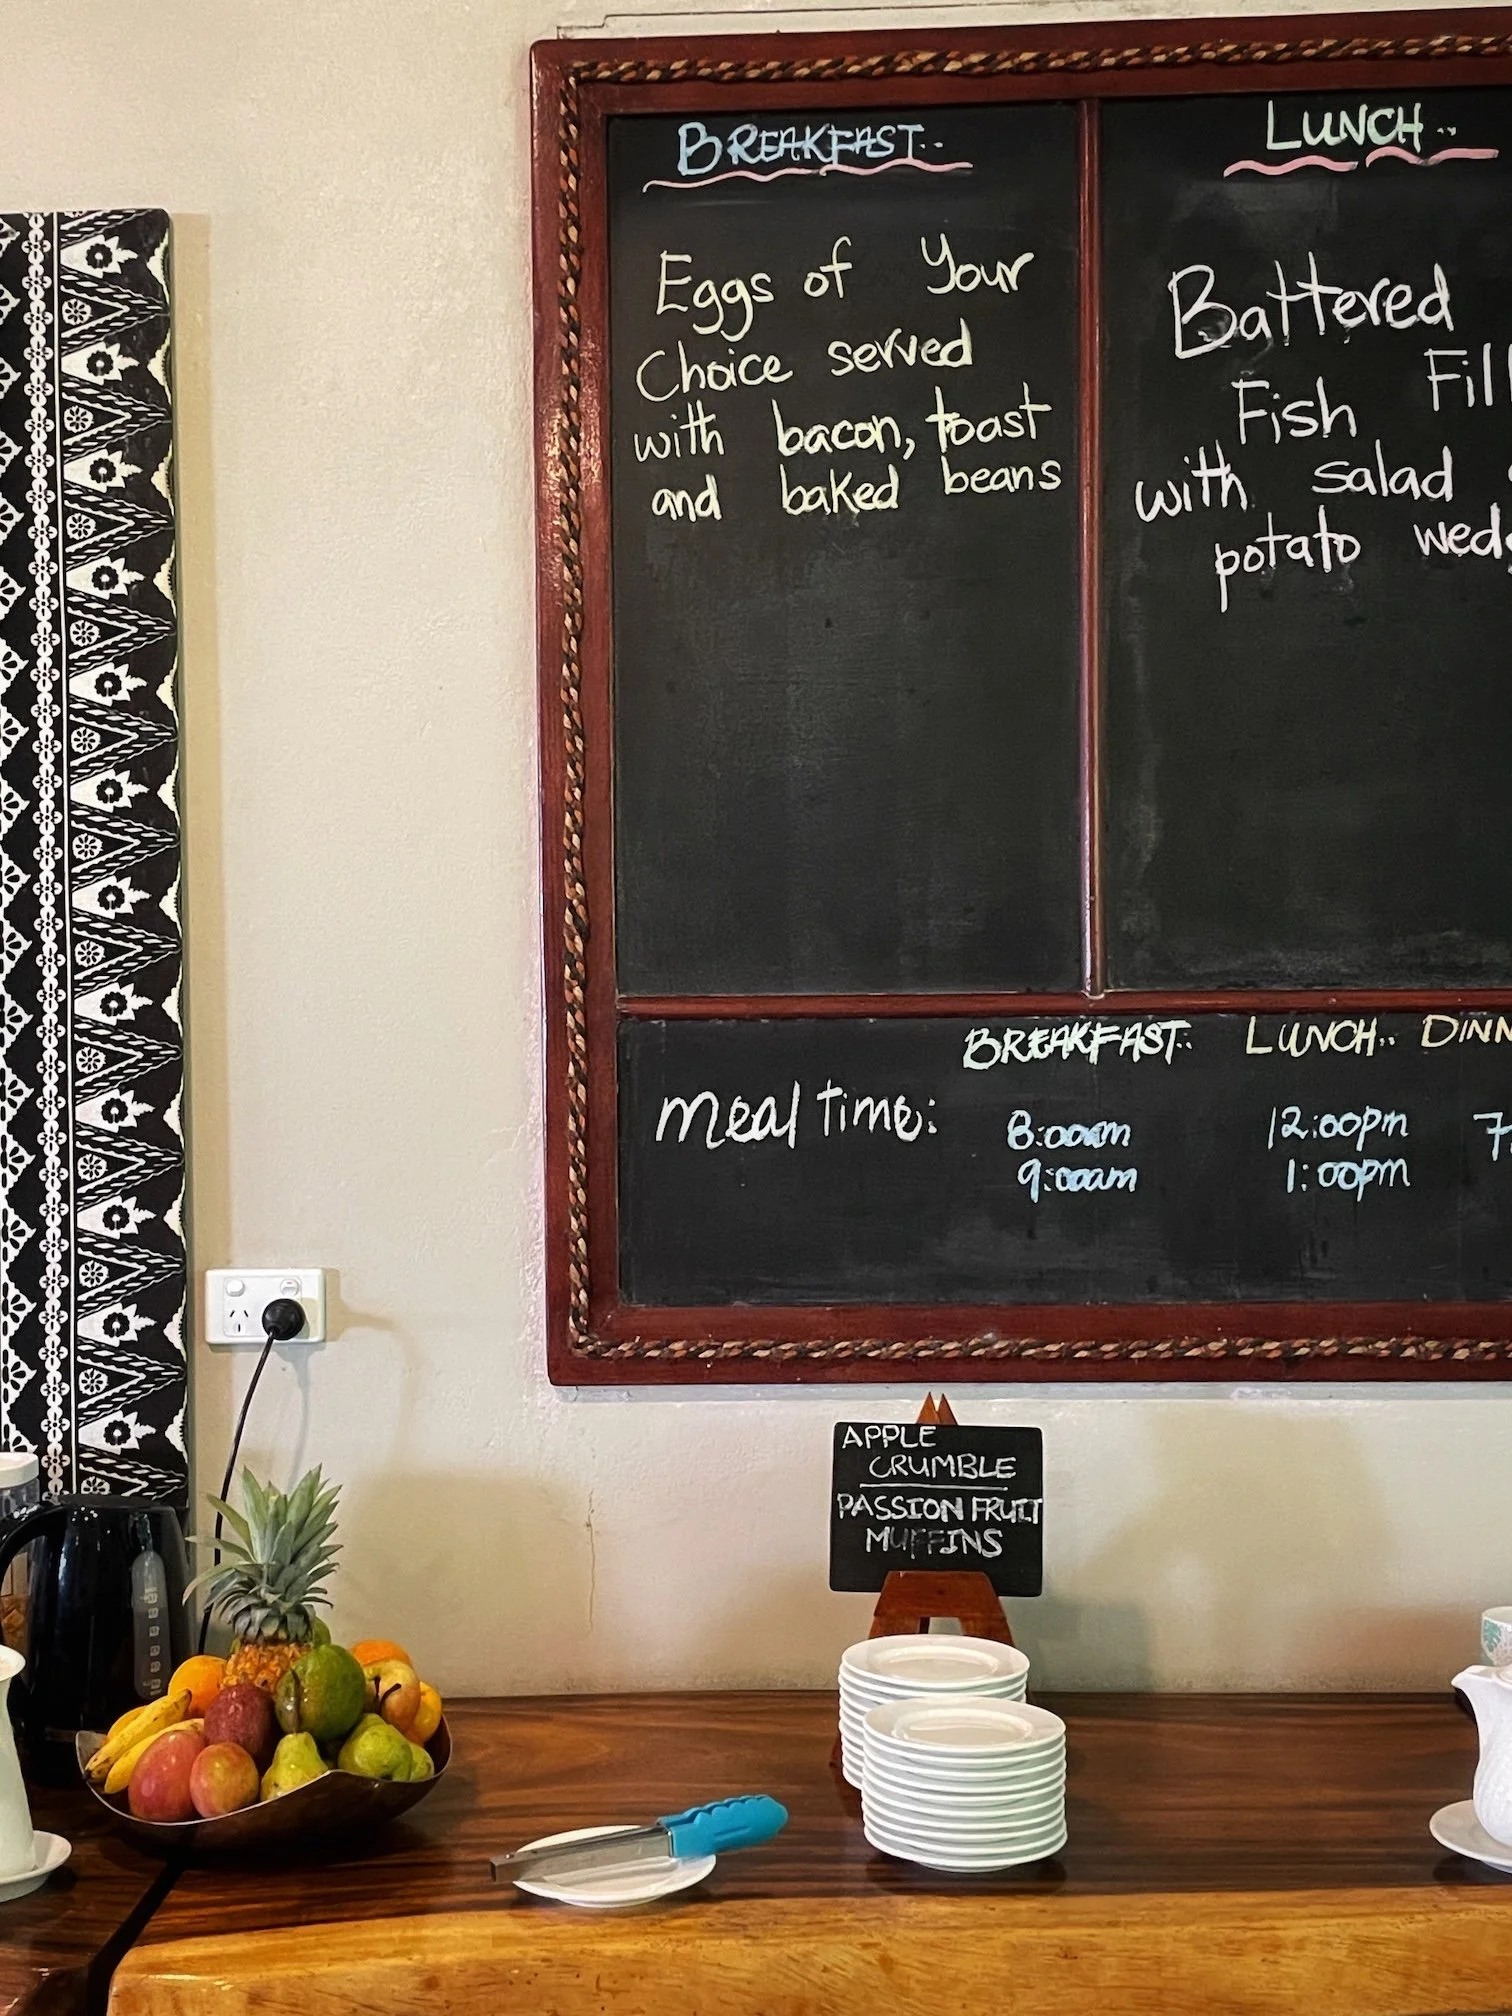 BREAKFAST..
Eggs of Your
Choice served
with bacon, toast
and baked beans
LUNCH..
Battered
Fish
with salad
potato
BREAKFAST.. LUNCH..
meal time:
8:00am 12:00pm
9:00am 1:00pm
APPLE
CRUMBLE
PASSION FRUIT
MUFFINS